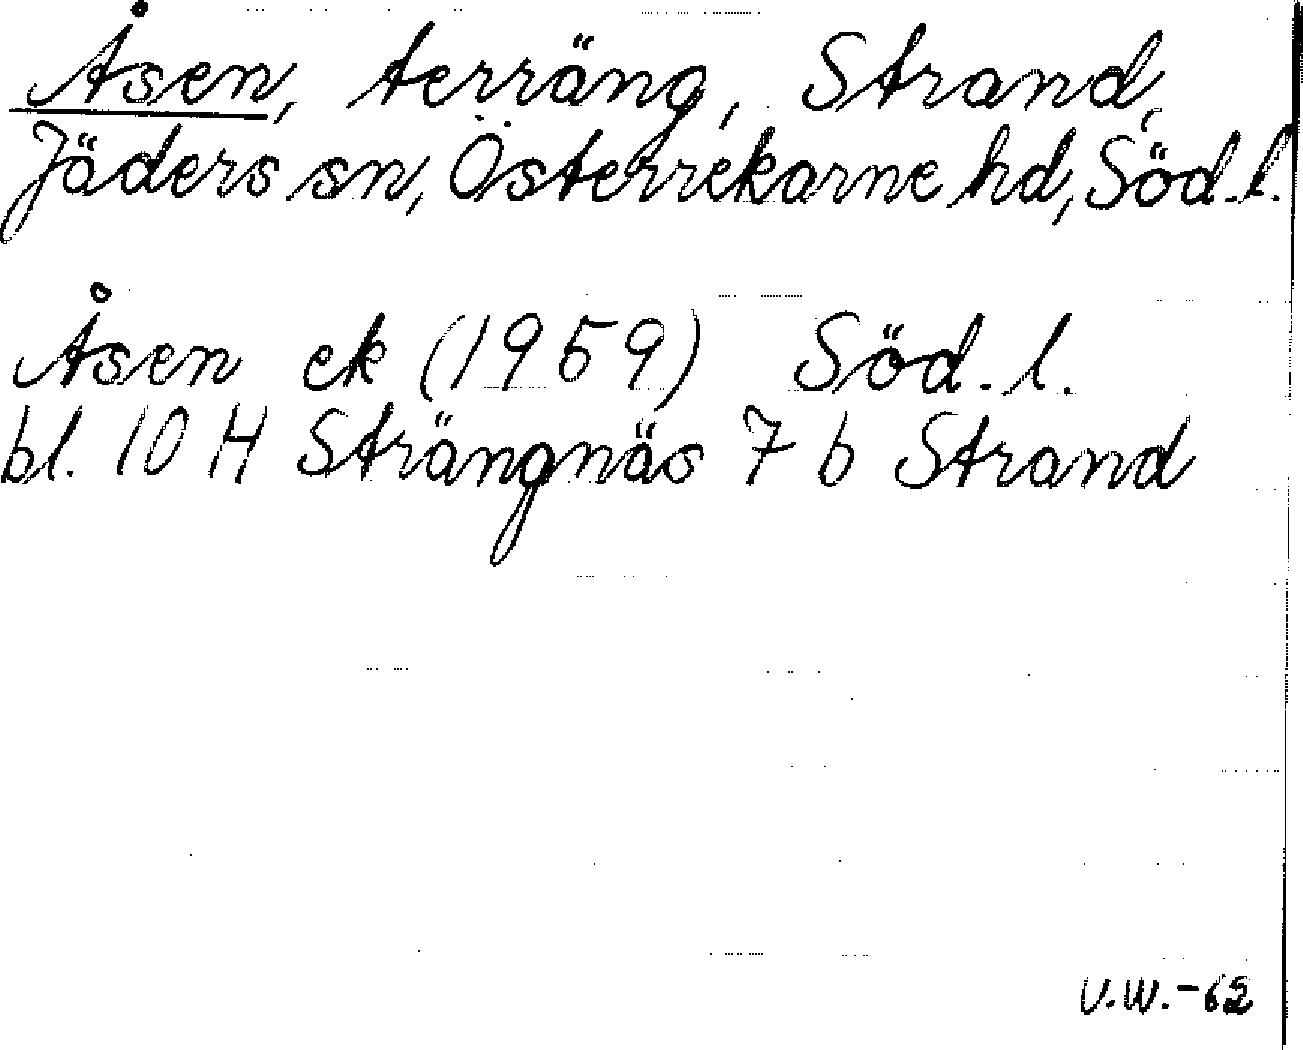 Åsen, terräng, Strand,
Jäders sn, Österrekarne hd, Söd. l.
Åsen ek (1959) Söd. l.
bl. 10 H Strängnäs 7 b Strand
V.W.-62